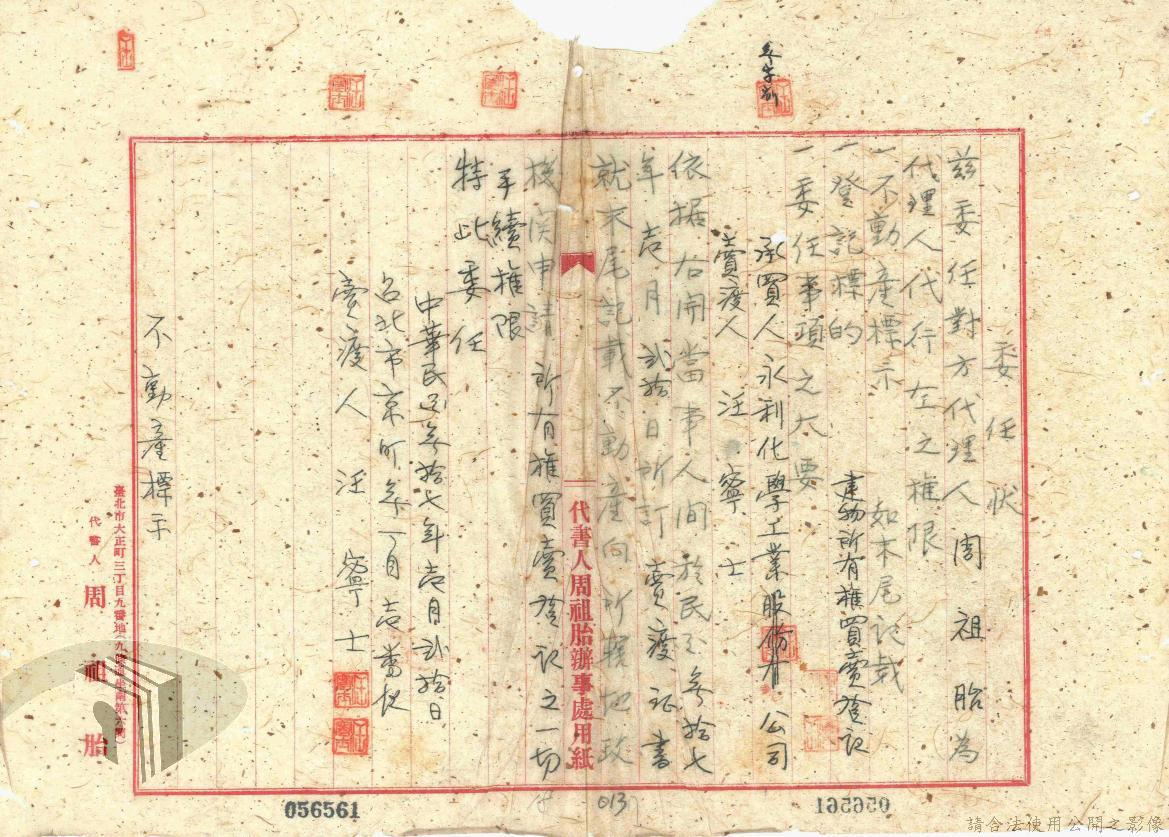 委任狀
茲委任對方代理人周祖胎為
代理人代行左之權限
一不動產標示 如末尾記載
一登記標的 建物所有權買賣登記
一委任事項之大要
承買人永利化學工業股份有公司
賣渡人 汪寧士
依据右開當事人間於民國參拾七
年壱月弍拾日所訂賣渡证書
就末尾記載不動產向所轄地政
機関申請所有權買賣登記之一切
手續権限
特此委任
中華民国參拾七年壱月弍拾日
台北市京町
賣渡人 汪寧士
不動產標示
代書人周祖胎辦事處用紙
臺北市大正町三丁目九番地
代書人 周祖胎
056561
013
195950
請合法使用公開之影像